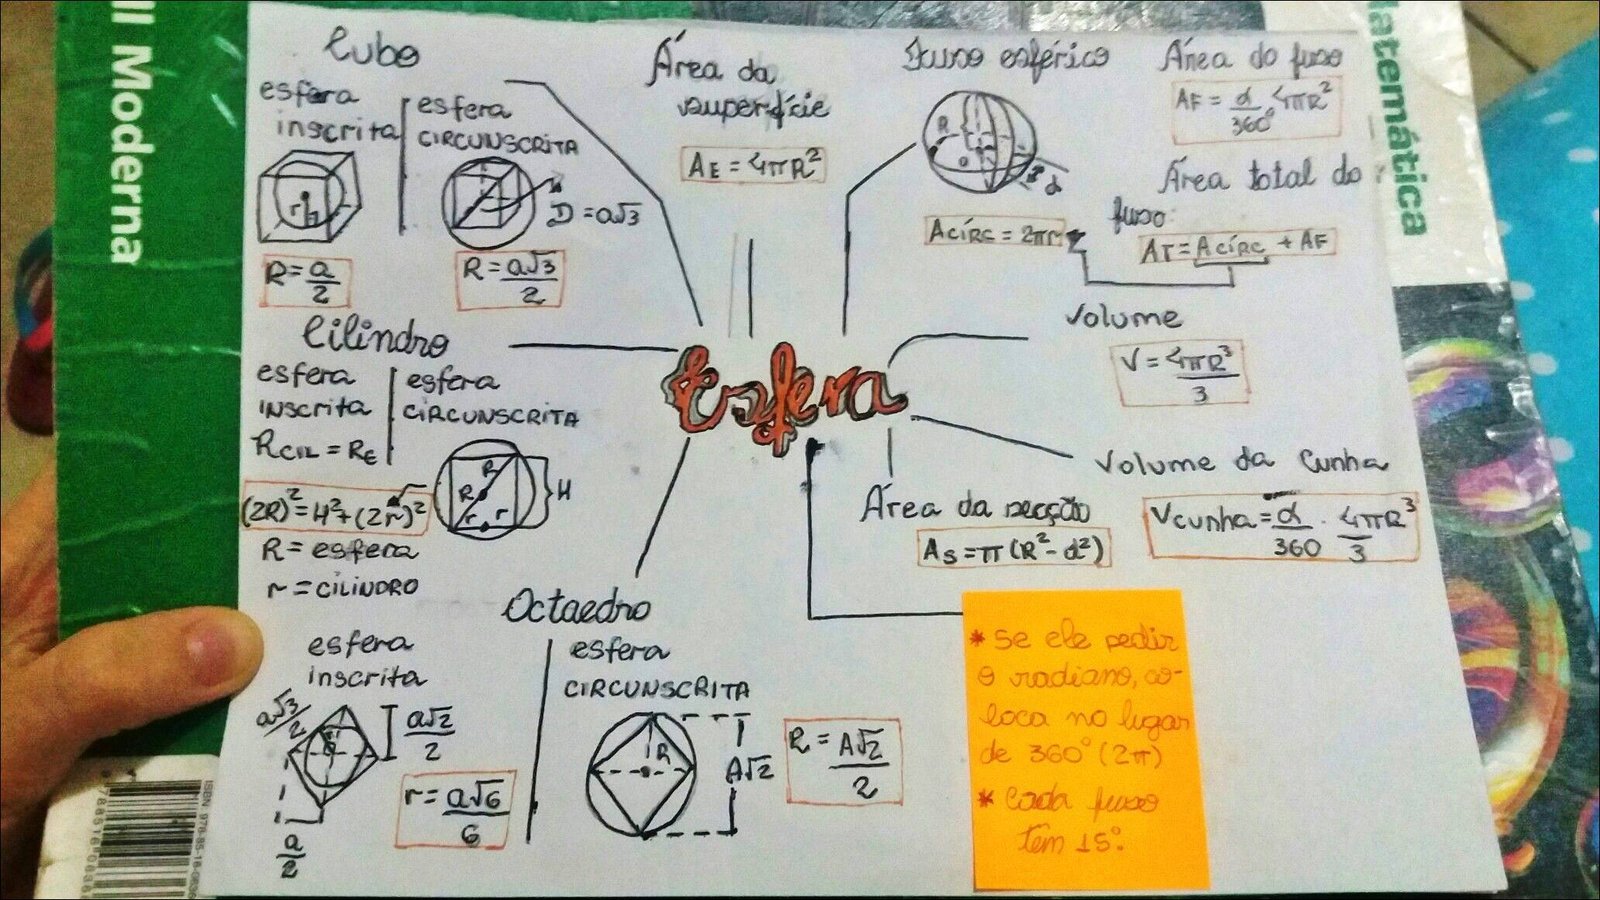 ul Moderna
Matemática
Cubo
esfera
inscrita
esfera
CIRCUNSCRITA
r
D = a√3
R = a/2
R = a√3/2
Área da
superfície
AE = 4πR²
Fuso esférico
R
α
Acírc = 2πr
Área do fuso
AF = α/360° 4πR²
Área total do
fuso:
AT = Acírc + AF
Cilindro
esfera
inscrita
RCIL = RE
esfera
CIRCUNSCRITA
R
R
r r
H
(2R)² = H² + (2r)²
R = esfera
r = CILINDRO
Esfera
Volume
V = 4πR³/3
Volume da Cunha
Vcunha = α/360 . 4πR³/3
Área da secção
AS = π (R² - d²)
Octaedro
esfera
inscrita
a√3/2
a√2/2
a/2
r = a√6/6
esfera
CIRCUNSCRITA
R
A√2
R = A√2/2
* se ele pedir
o radiano, co-
loca no lugar
de 360° (2π)
* Cada fuso
têm 15°.